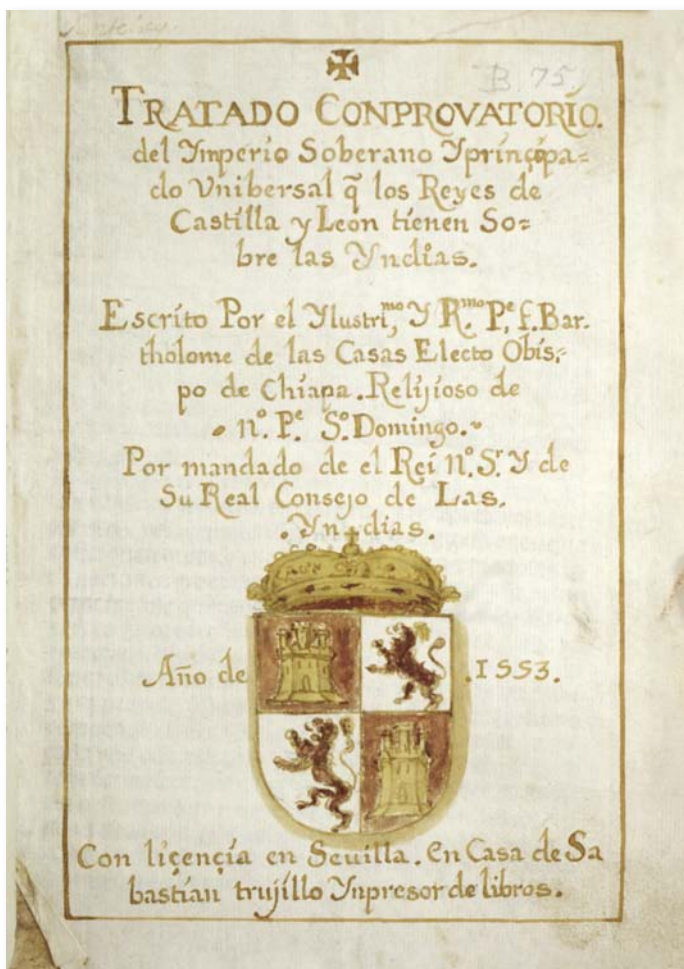 B. 75
TRATADO CONPROVATORIO.
del Ymperio Soberano Yprinçipa=
do Vnibersal q̃ los Reyes de
Castilla y León tienen So=
bre las Yndias.
Escrito Por el Ylustri,mo Y R.mo P,e f. Bar.
tholome de las Casas Electo Obis,=
po de Chiapa. Relijioso de
nº. P.e Sº. Domingo.
Por mandado de el Rei Nº. S.r Y de
Su Real Consejo de Las.
.Yndias.
Año de .1553.
Con liçençia en Seuilla. en Casa de Sa
bastian trujillo Ynpresor de libros.